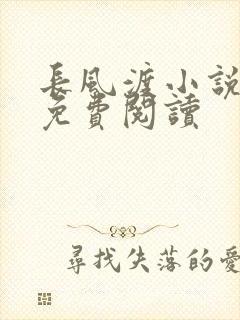 長風渡小說
免費閱讀
尋找失落的愛